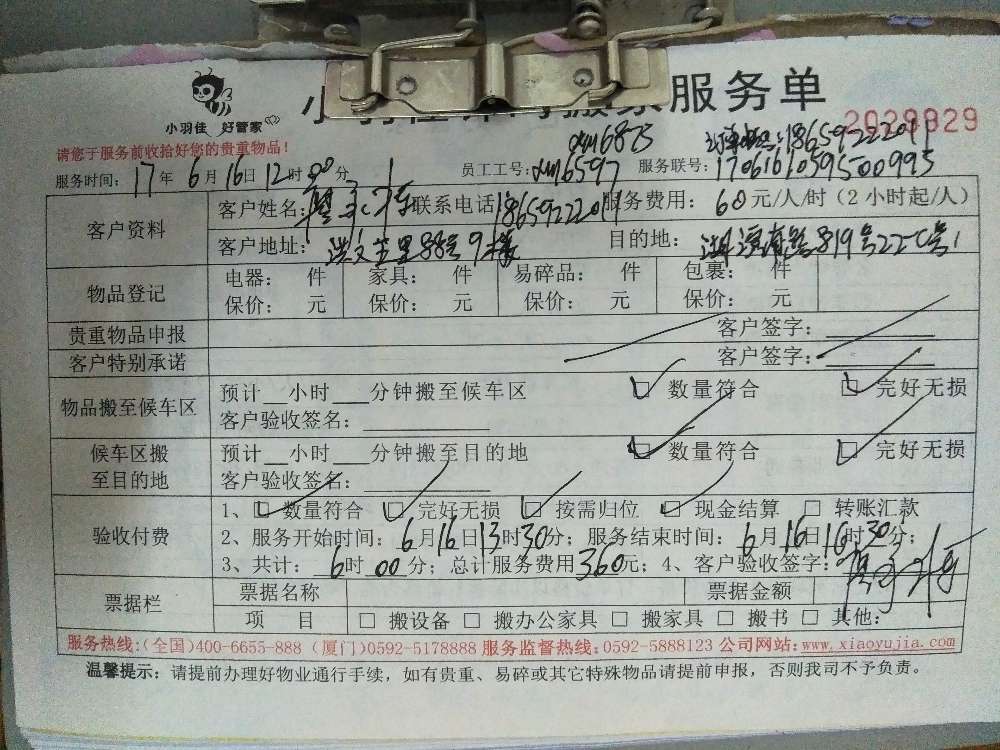 小羽佳 好管家
服务单
2029829
请您于服务前收拾好您的贵重物品！
xm6875
18659222011
服务时间：17年6月16日12时00分 员工工号：xm16597 服务联号：1706161059500995
客户资料
客户姓名： 联系电话18659222011服务费用：60元/人/时（2小时起/人）
客户地址：洪文五里88号9楼 目的地：湖滨南路819号22C号1
物品登记
电器： 件 家具： 件 易碎品： 件 包裹： 件
保价： 元 保价： 元 保价： 元 保价： 元
贵重物品申报 客户签字：
客户特别承诺 客户签字：
物品搬至候车区
预计__小时___分钟搬至候车区 数量符合 完好无损
客户验收签名：
候车区搬至目的地
预计__小时___分钟搬至目的地 数量符合 完好无损
客户验收签名：
验收付费
1、☑数量符合 ☑完好无损 ☑按需归位 ☑现金结算 □转账汇款
2、服务开始时间：6月16日13时30分；服务结束时间：6月16日16时30分；
3、共计：6时00分；总计服务费用360元；4、客户验收签字：
票据栏
票据名称 票据金额
项 目 □ 搬设备 □ 搬办公家具 □ 搬家具 □ 搬书 □ 其他：
服务热线：(全国)400-6655-888 (厦门)0592-5178888 服务监督热线：0592-5888123 公司网站：www.xiaoyujia.com
温馨提示：请提前办理好物业通行手续，如有贵重、易碎或其它特殊物品请提前申报，否则我司不予负责。